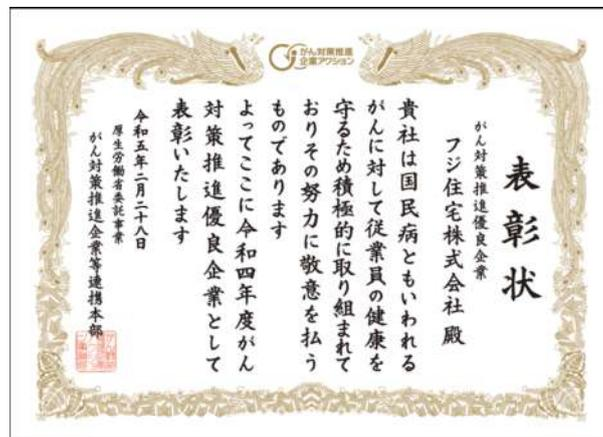 がん対策推進
企業アクション
表彰状
がん対策推進優良企業
フジ住宅株式会社 殿
貴社は国民病ともいわれる
がんに対して従業員の健康を
守るため積極的に取り組まれて
おりその努力に敬意を払う
ものであります
よってここに令和四年度がん
対策推進優良企業として
表彰いたします
令和五年二月二十八日
厚生労働省委託事業
がん対策推進企業等連携本部